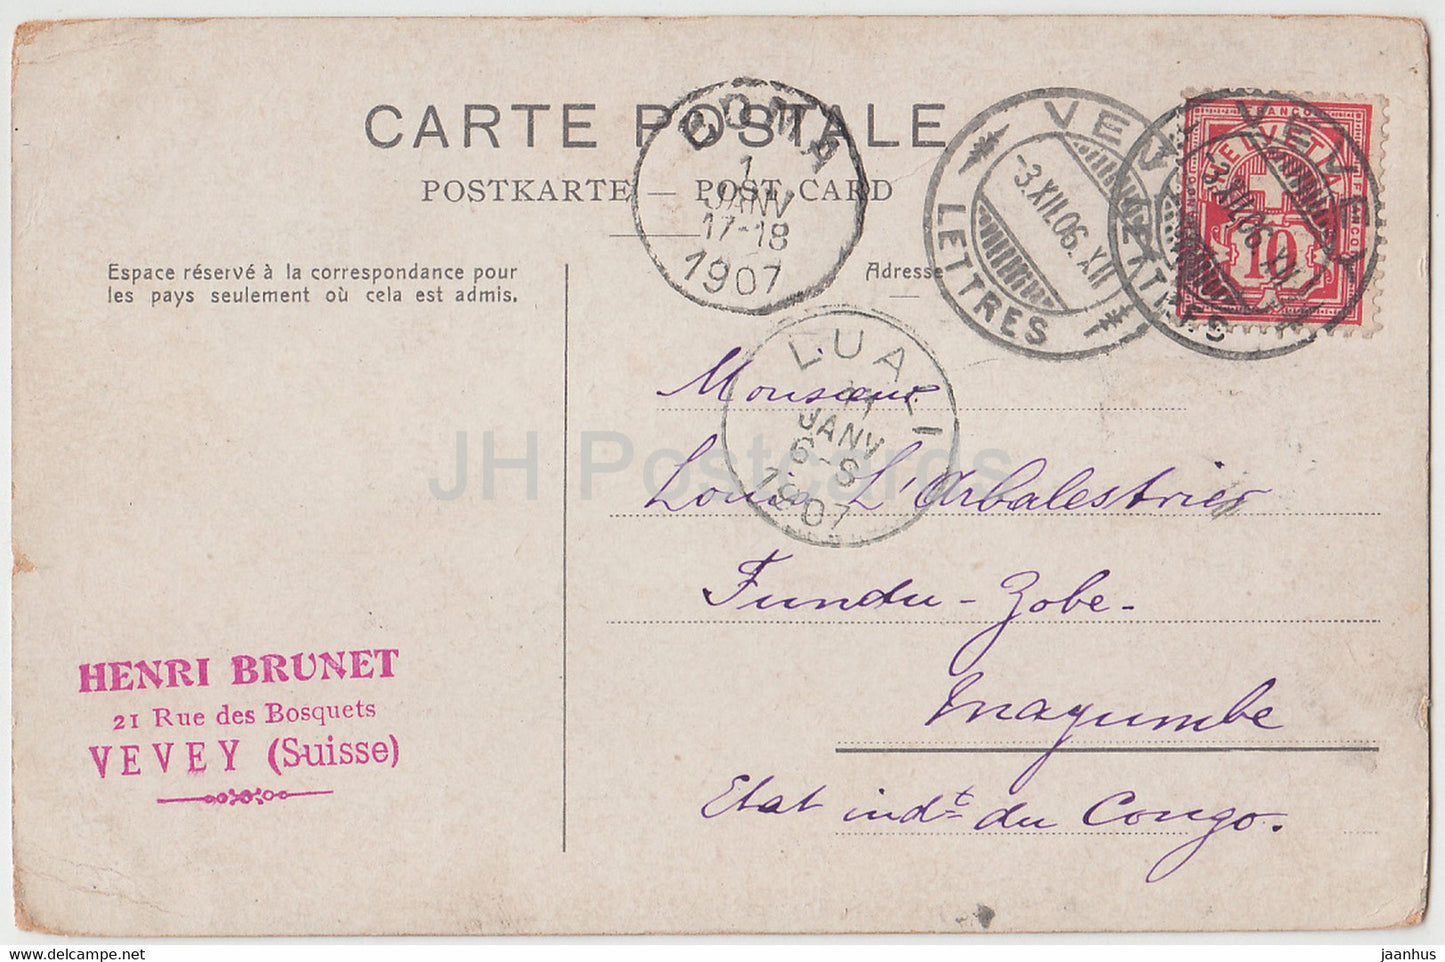 CARTE POSTALE
POSTKARTE — POST CARD
BOMA
1
JANV
17-18
1907
VEVEY
-3.XII.06.XII
LETTRES
VEVEY
-3.XII.06.XII
LETTRES
FRANCO
HELVETIA
10
Espace réservé à la correspondance pour
les pays seulement où cela est admis.
Adresse
LUALI
11
JANV
6-8
1907
Monsieur
Louis L'Arbalestrier
Fundu-Zobe-
Mayumbe
Etat indt du Congo.
HENRI BRUNET
21 Rue des Bosquets
VEVEY (Suisse)
JH Postcards
jaanhus